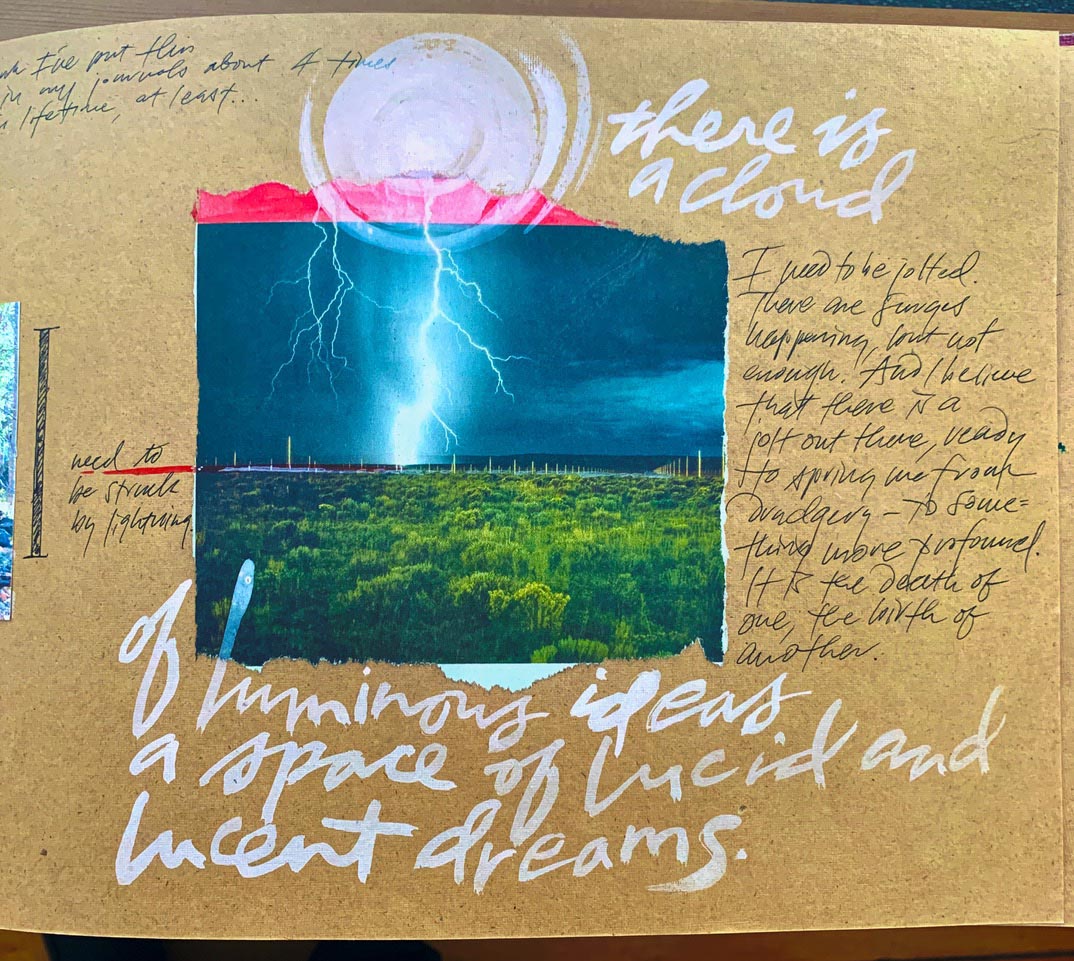 I've put this
in my journals about 4 times
lifetime, at least...
there is
a cloud
I need to be jolted.
There are surges
happening, but not
enough. And I believe
that there is a
jolt out there, ready
to spring me from
drudgery – to some=
thing more profound.
It is the death of
one, the birth of
another.
I
need to
be struck
by lightning.
of luminous ideas
a space of lucid and
lucent dreams.